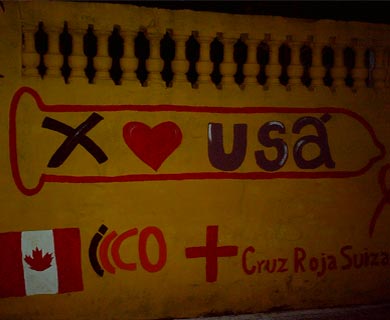 X ❤ usá
CCO + Cruz Roja Suiza